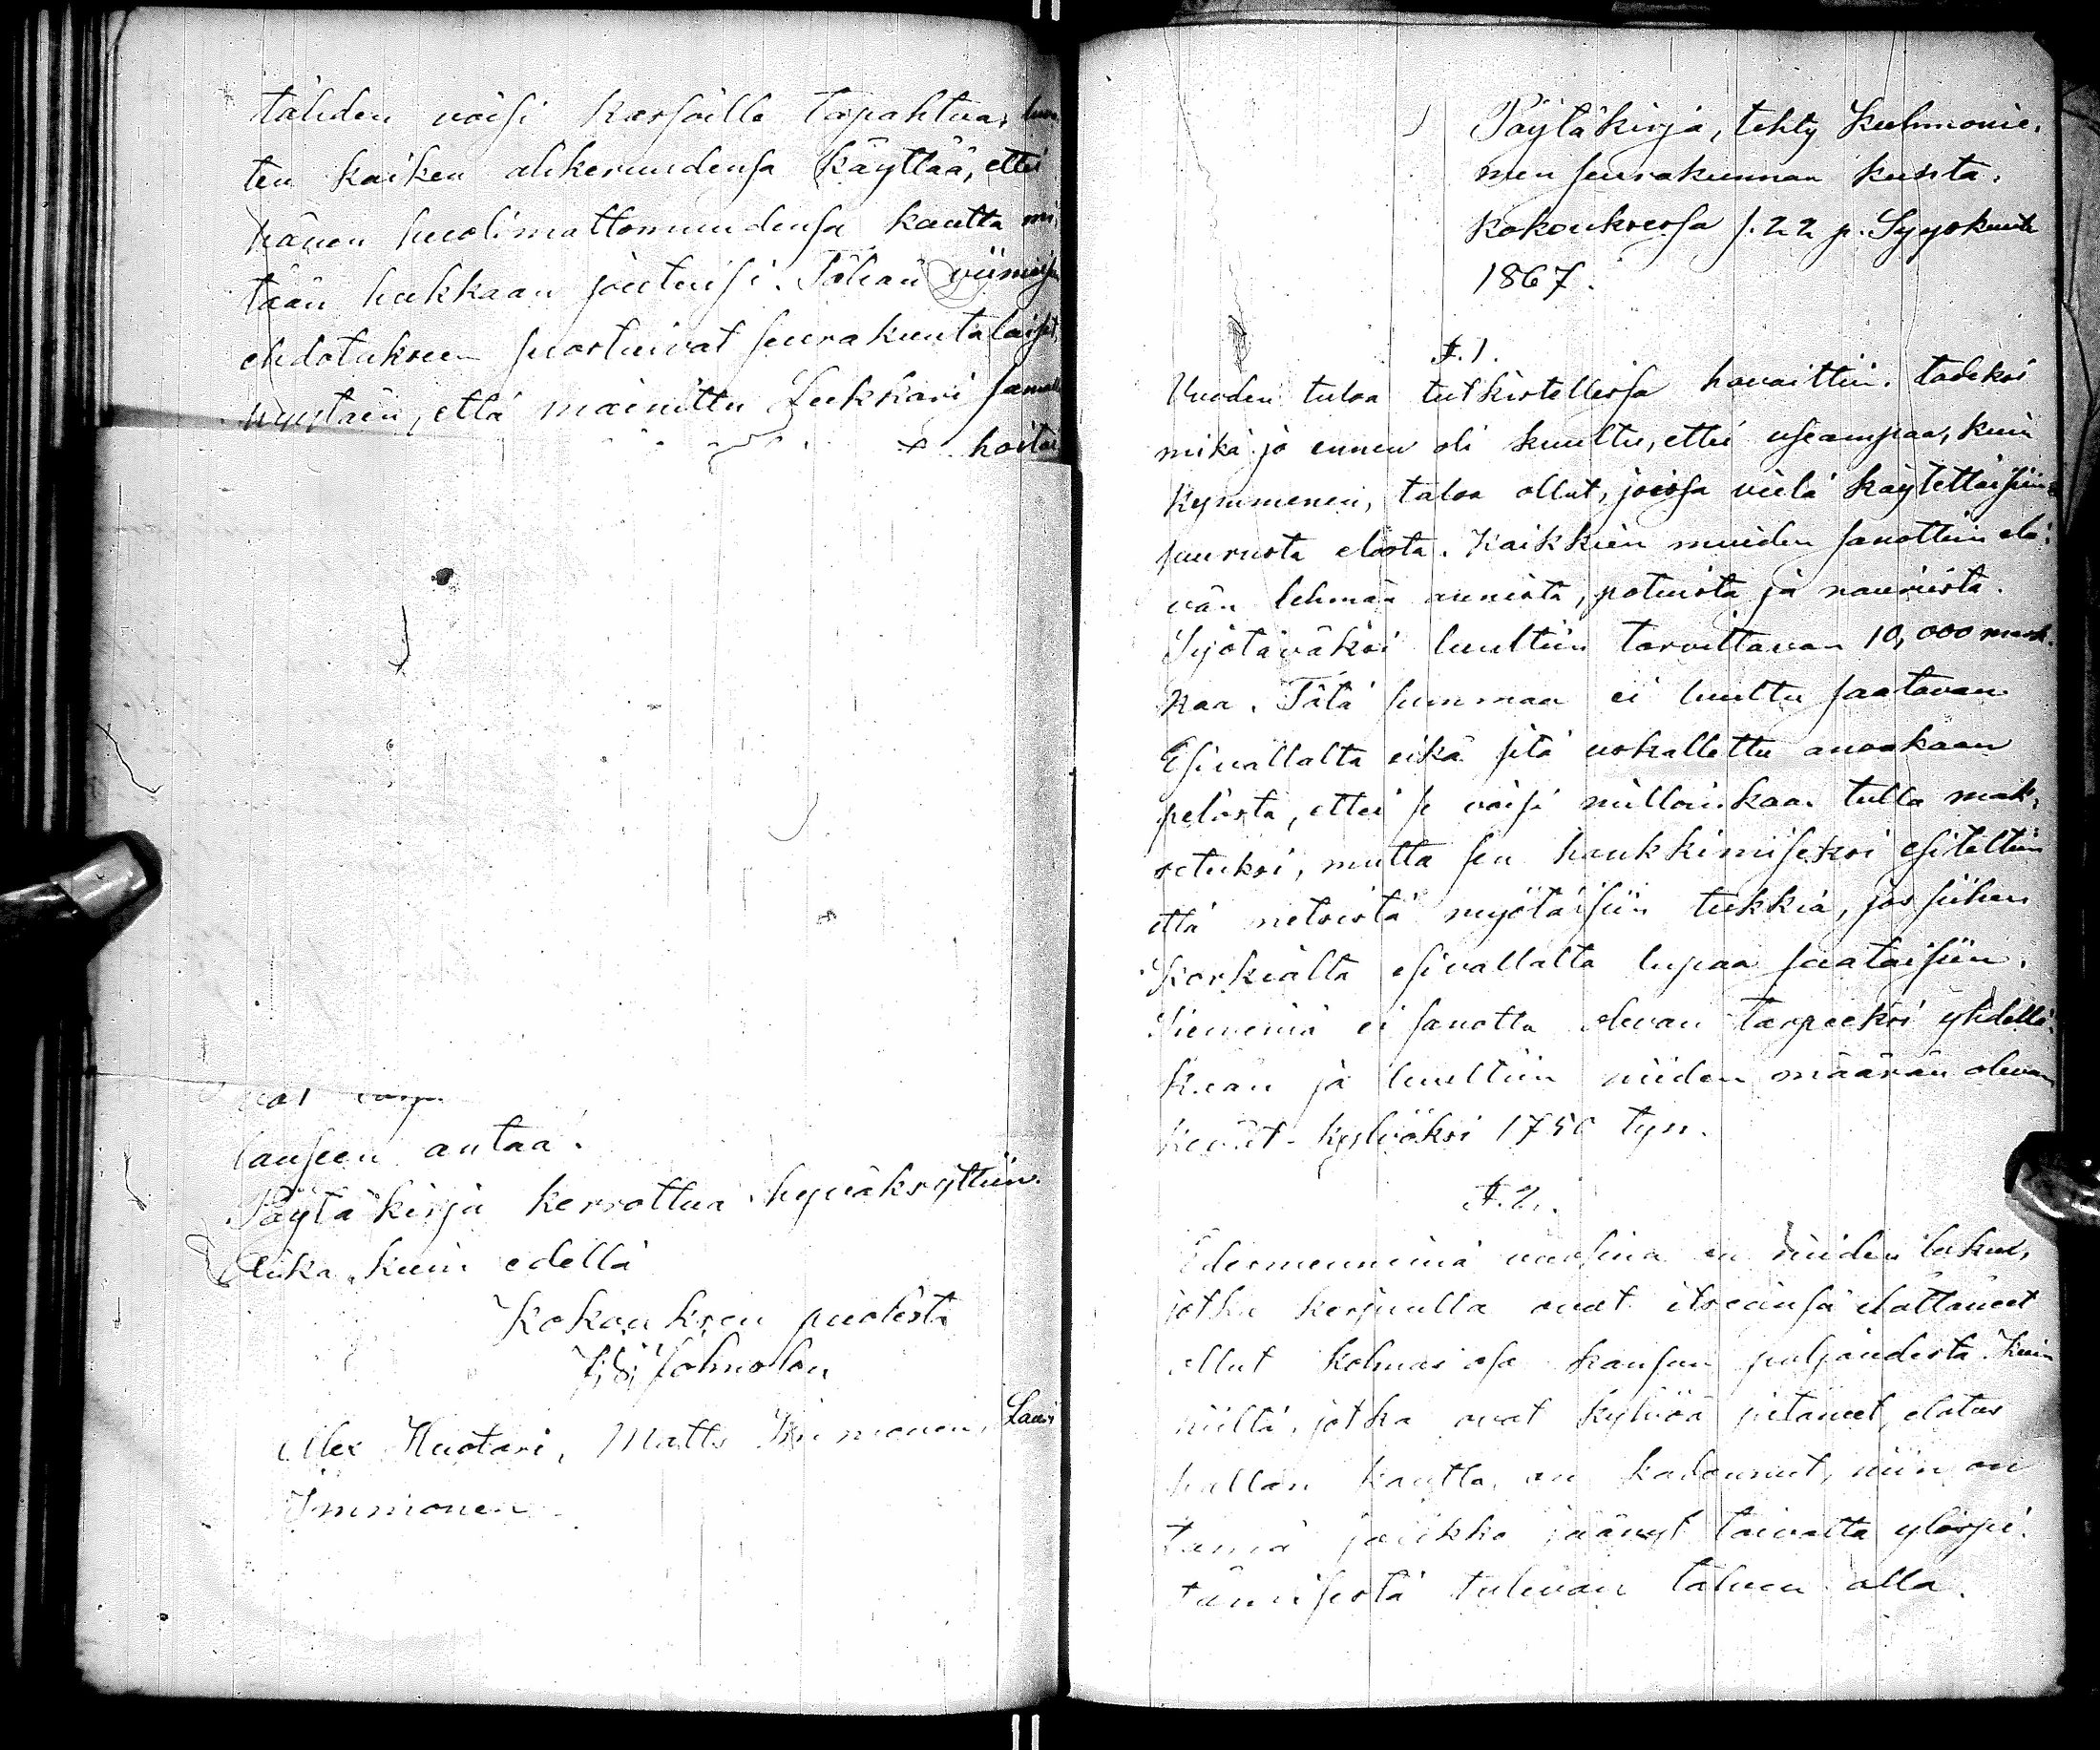 tähden voisi karsaille tapahtua,
ten kaiken ahkeruudensa käyttää, ettei
hänen huolimattomuudensa kautta mi-
tään hukkaan joutuisi. Tähän viimeisn
ehdotukseen suostuivat seurakuntalaiset,
pyytäin, että mainittu Lukkari samalla
hoitai
lauseen antaa.
Pöytäkirja kerrottua hyväksyttiin.
Aika kuin edellä
Kokouksen puolesta
Johnsson
Alex Huotari, Matts Immonen, Lauri
Immonen.
Pöytäkirja, tehty Kuhmonie-
men seurakunnan kunta-
kokouksessa s. 22 p. Syyskuuta
1867.
§. 1.
Vuoden tuloa tutkistellessa havaittiin todeksi
mikä jo ennen oli kuultu, ettei useampaa, kuin
kymmenen, taloa ollut, joissa vielä käytettäisiin
suurusta elosta. Kaikkien muiden sanottiin elä-
vän lehmän annista, potuista ja nauriista.
Syötäväksi luultiin tarvittavan 10,000 mark-
kaa. Tätä summaa ei luultu saatavan
Esivallalta eikä sitä uskallettu anoakaan
pelosta, ettei se voisi milloinkaan tulla mak-
setuksi, mutta sen hankkimiseksi esiteltiin
että metsistä myötäisiin tukkia, jos siihen
Korkialta esivallalta lupaa saataisiin.
Siemeniä ei sanottu olevan tarpeeksi yhdellä-
kään ja luultiin niiden määrän olevan
kevät-kylvöksi 1750 tyn.
§. 2.
Edesmenneinä vuosina on niiden luku,
jotka kerjuulla ovat itseänsä elättäneet
ollut kolmas osa kansan paljoudesta. Kuin
niiltä, jotka ovat kylvöä pitäneet, elatus
hallan kautta, on kadonnut, niin on
tämä joukko jäänyt toivotta ylöspi-
tämisestä tulevan talven alla.